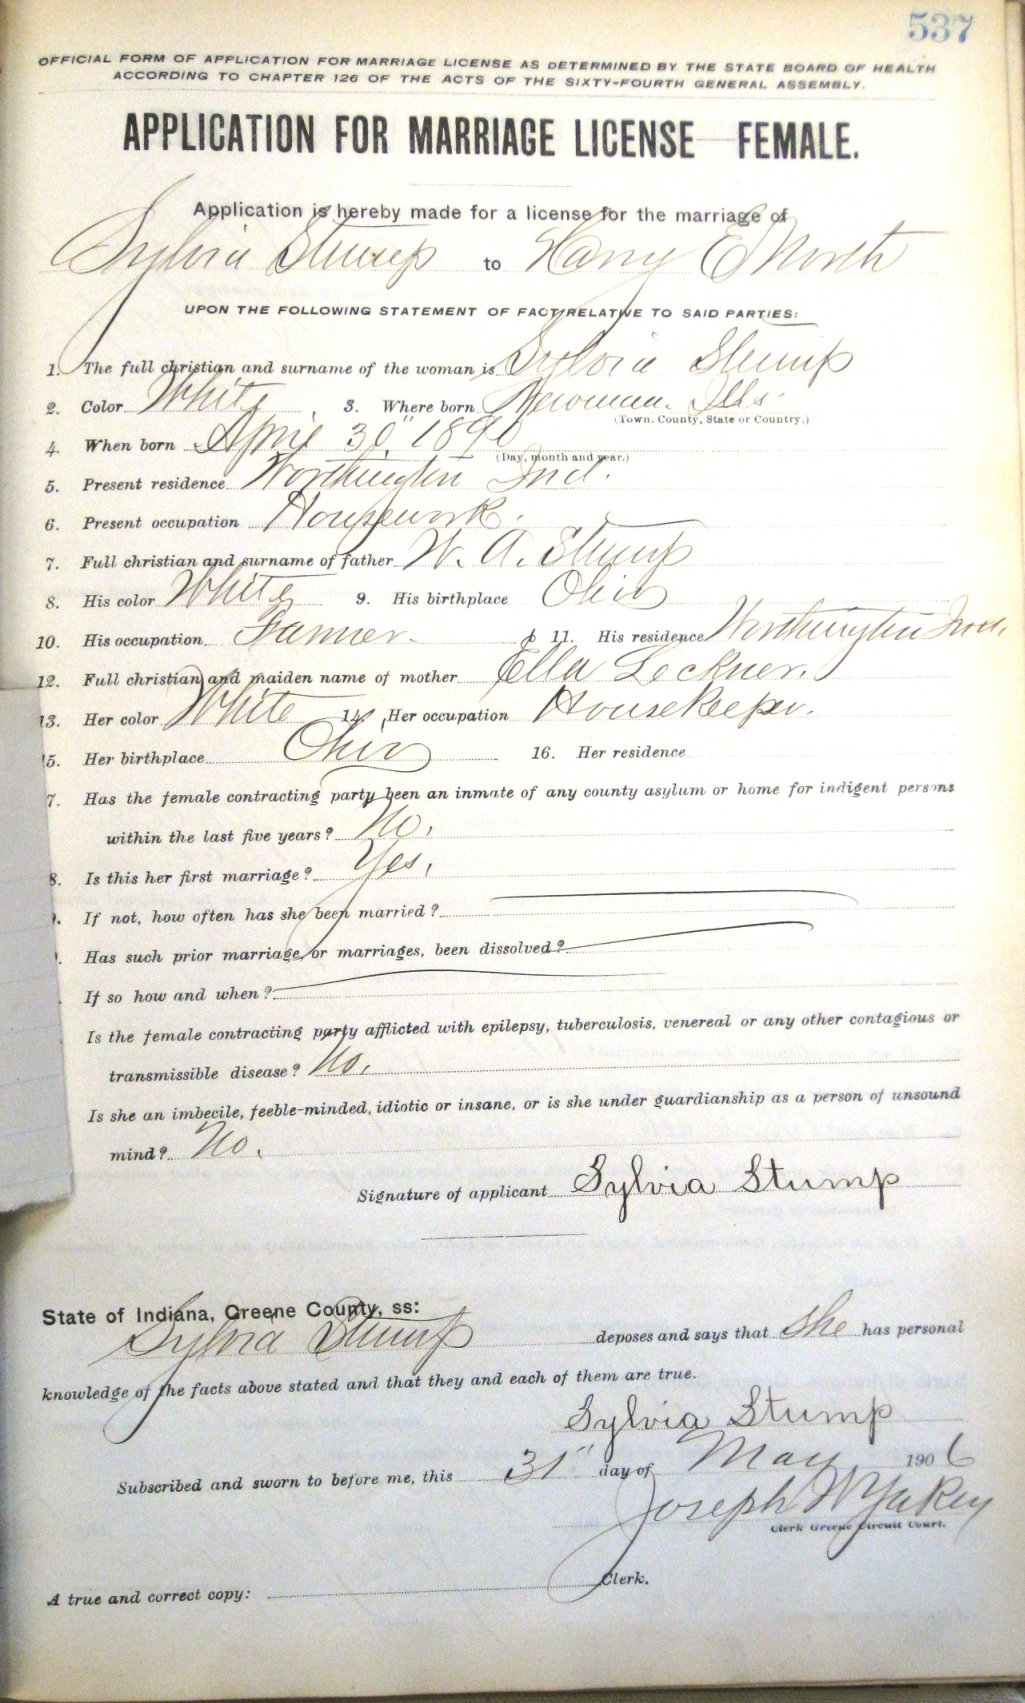 537
OFFICIAL FORM OF APPLICATION FOR MARRIAGE LICENSE AS DETERMINED BY THE STATE BOARD OF HEALTH
ACCORDING TO CHAPTER 126 OF THE ACTS OF THE SIXTY-FOURTH GENERAL ASSEMBLY.
APPLICATION FOR MARRIAGE LICENSE FEMALE.
Application is hereby made for a license for the marriage of
Sylvia Stump to Harry E North
UPON THE FOLLOWING STATEMENT OF FACT RELATIVE TO SAID PARTIES:
1. The full christian and surname of the woman is Sylvia Stump
2. Color White 3. Where born Newman. Ills.
(Town, County, State or Country.)
4. When born April 30" 1890
(Day, month and year.)
5. Present residence Worthington Ind.
6. Present occupation Housework.
7. Full christian and surname of father W. A. Stump
8. His color White 9. His birthplace Ohio
10. His occupation Farmer. 11. His residence Worthington Ind.
12. Full christian and maiden name of mother Ella Leckner.
13. Her color White 14. Her occupation Housekeeper.
15. Her birthplace Ohio 16. Her residence
7. Has the female contracting party been an inmate of any county asylum or home for indigent persons
within the last five years? No.
8. Is this her first marriage? Yes.
If not, how often has she been married?
Has such prior marriage, or marriages, been dissolved?
If so how and when?
Is the female contracting party afflicted with epilepsy, tuberculosis, venereal or any other contagious or
transmissible disease? No.
Is she an imbecile, feeble-minded, idiotic or insane, or is she under guardianship as a person of unsound
mind? No.
Signature of applicant Sylvia Stump
State of Indiana, Greene County, ss:
Sylvia Stump deposes and says that She has personal
knowledge of the facts above stated and that they and each of them are true.
Sylvia Stump
Subscribed and sworn to before me, this 31" day of May 1906
Joseph W Yakey
Clerk Greene Circuit Court.
A true and correct copy: Clerk.